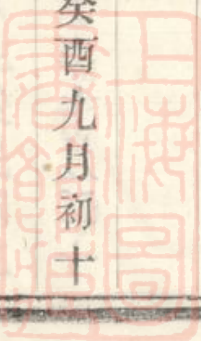 癸酉九月初十
上海圖
書館藏